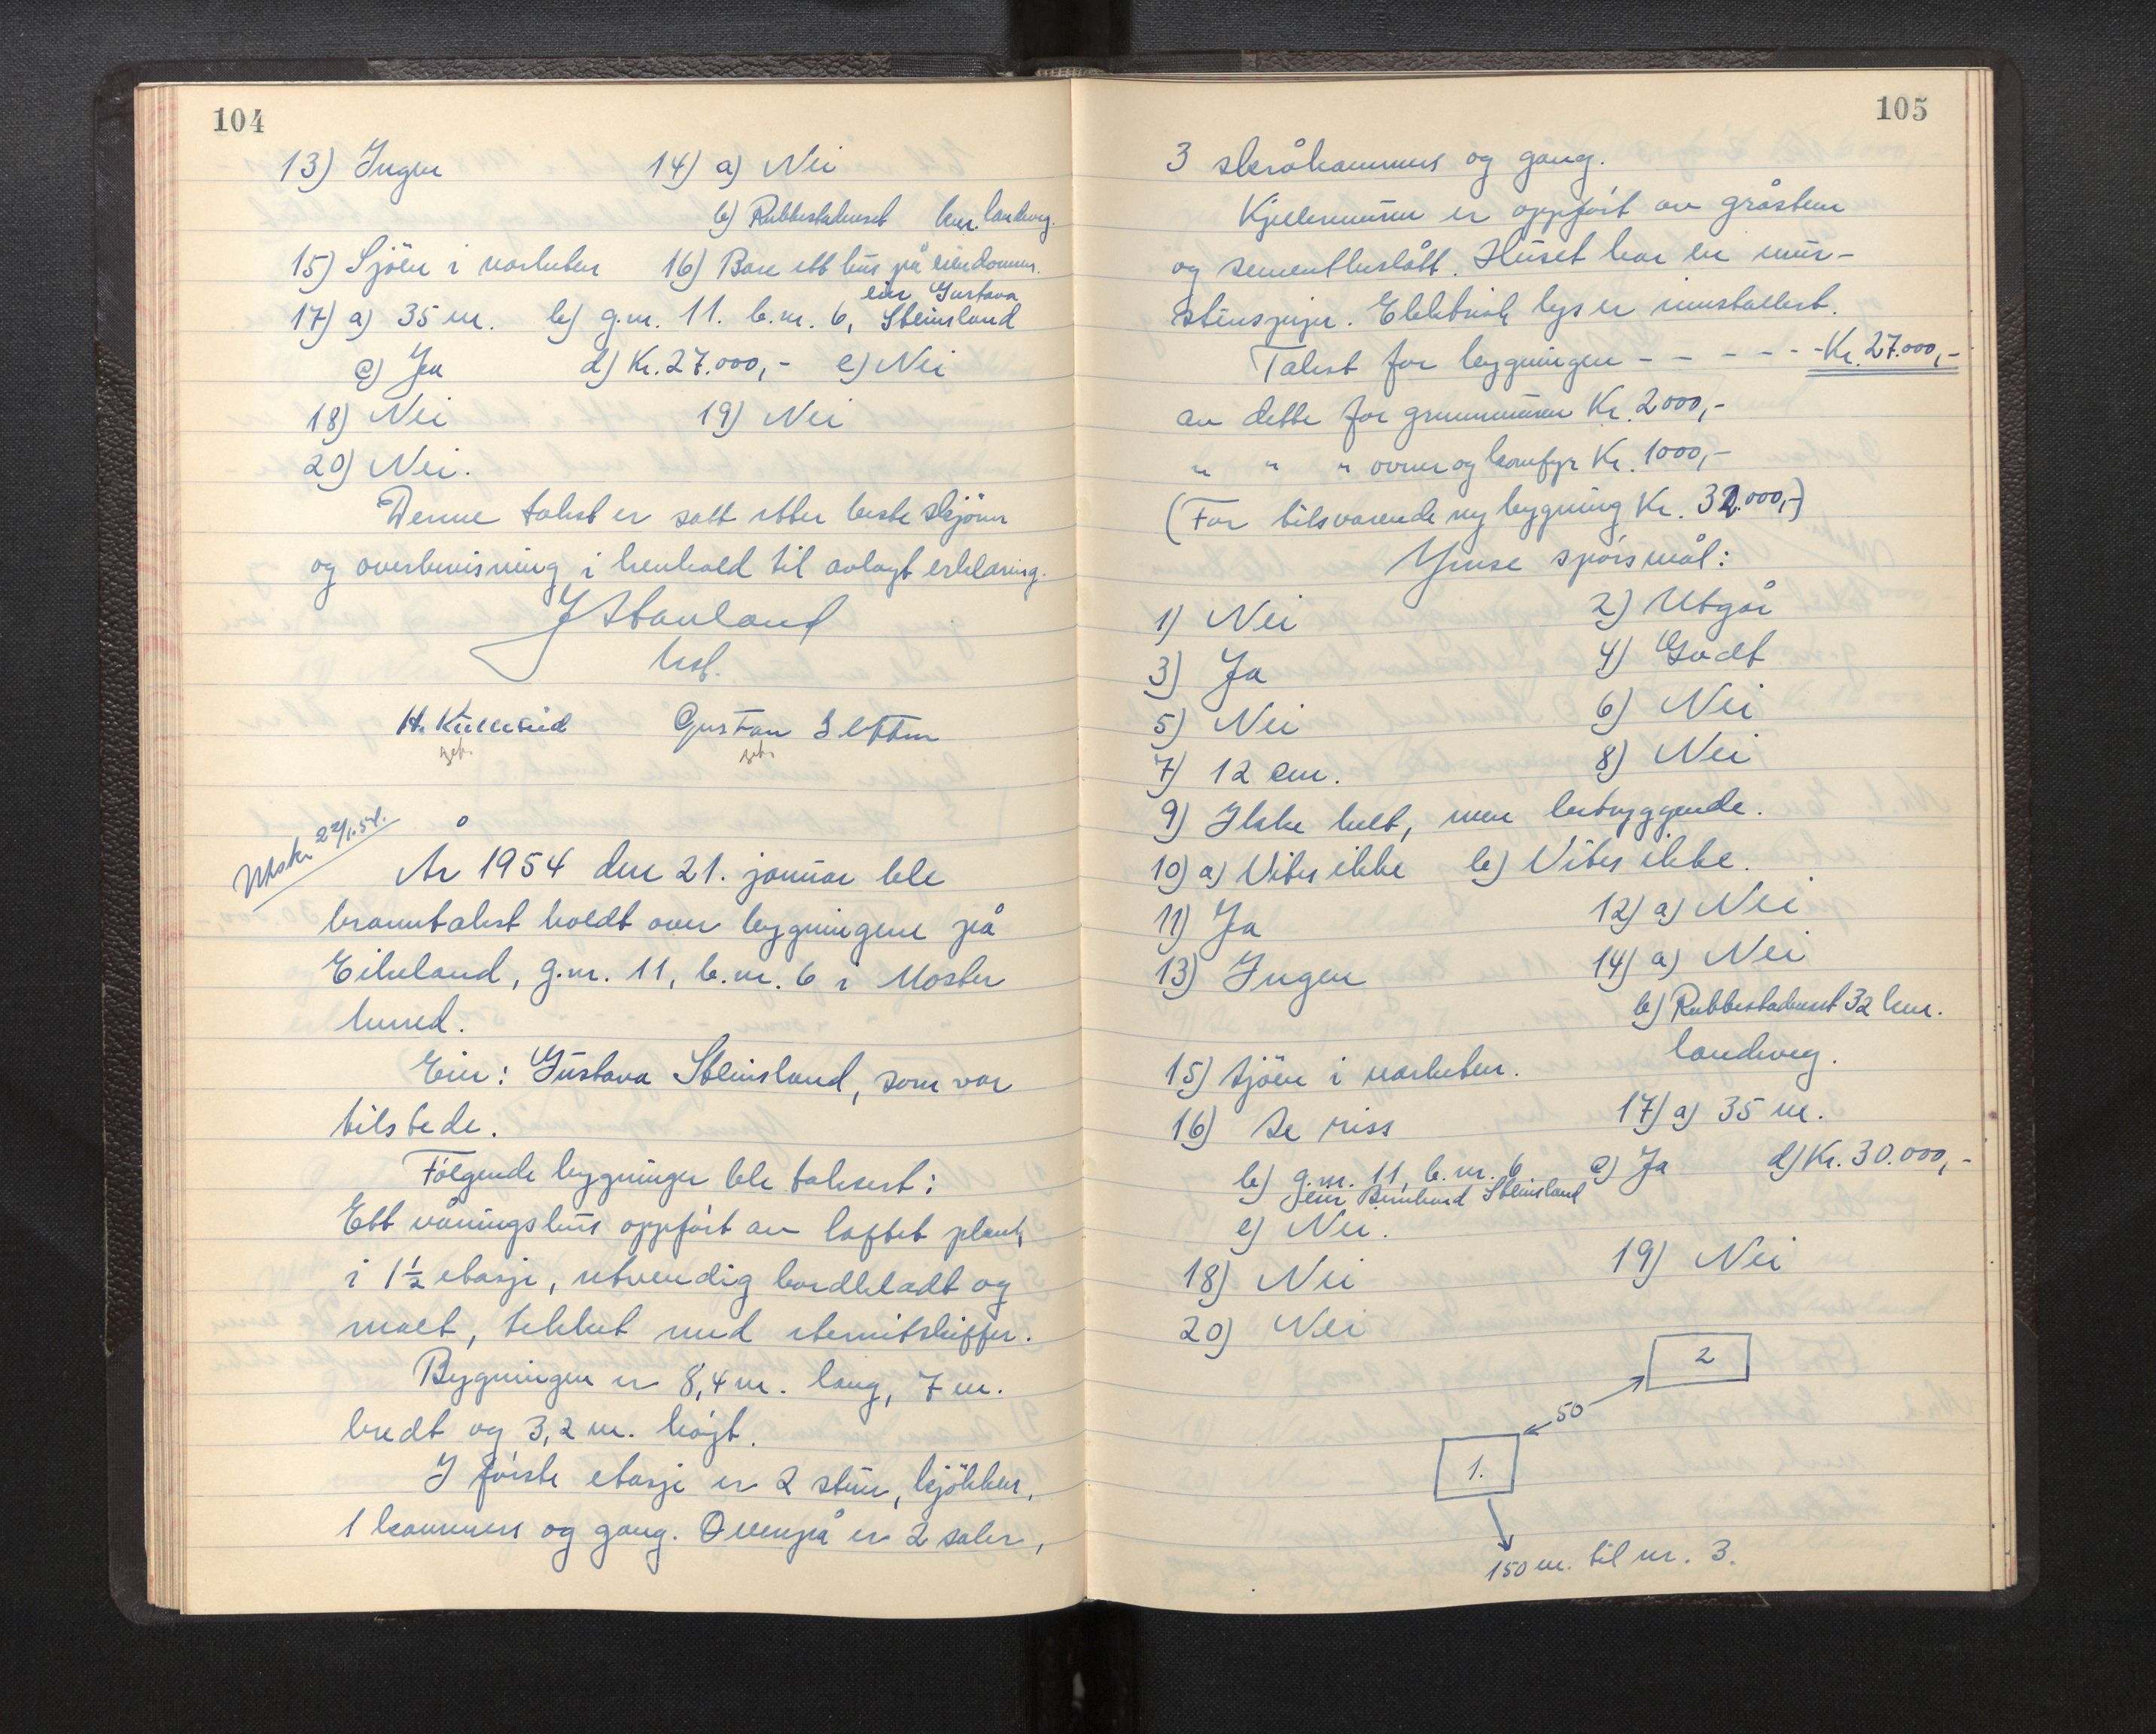 104
13) Ingen 14) a) Nei
b) Rubbestadneset km. landveg.
15) Sjöen i närheten 16) Bare ett hus på eiendommen.
17) a) 35 m. b) g.nr. 11. b.nr. 6, eier Gustava Steinsland
c) Ja d) Kr. 27.000,- e) Nei
18) Nei 19) Nei
20) Nei.
Denne takst er satt etter beste skjönn
og overbevisning i henhold til avlagt erklæring.
J Stavland
lensm.
H. Kulleseid Gustav Sletten
Utskr. 22/1.54.
År 1954 den 21. januar ble
branntakst holdt over bygningene på
Eikeland, g.nr. 11, b.nr. 6 i Moster
herred.
Eier: Gustava Steinsland, som var
tilstede.
Fölgende bygninger ble taksert:
Ett våningshus oppfört av laftet plank,
i 1½ etasje, utvendig bordkledt og
malt, tekket med eternitskiffer.
Bygningen er 8,4 m. lang, 7 m.
bredt og 3,2 m. högt.
I förste etasje er 2 stuer, kjökken,
1 kammers og gang. Ovenpå er 2 saler,
105
3 skråkammers og gang.
Kjellermuren er oppfört av gråsten
og sementbeslått. Huset har en mur-
stenspipe. Elektrisk lys er installert.
Takst for bygningen - - - - - - Kr. 27.000,-
av dette for grunnmuren Kr. 2000,-
" " " ovner og komfyr Kr. 1000,-
(For tilsvarende ny bygning Kr. 32.000,-)
Ymse spörsmål:
1) Nei 2) Utgår
3) Ja 4) Godt
5) Nei 6) Nei
7) 12 cm. 8) Nei
9) Ikke helt, men betryggende.
10) a) Vites ikke b) Vites ikke.
11) Ja 12) a) Nei
13) Ingen 14) a) Nei
b) Rubbestadneset 32 km.
landveg.
15) Sjöen i nærheten.
16) Se riss 17) a) 35 m.
b) g.nr. 11, b.nr. 6 c) Ja d) Kr. 30.000,-
eier Bernhard Steinsland
e) Nei.
18) Nei 19) Nei
20) Nei
2
50
1.
150 m. til nr. 3.